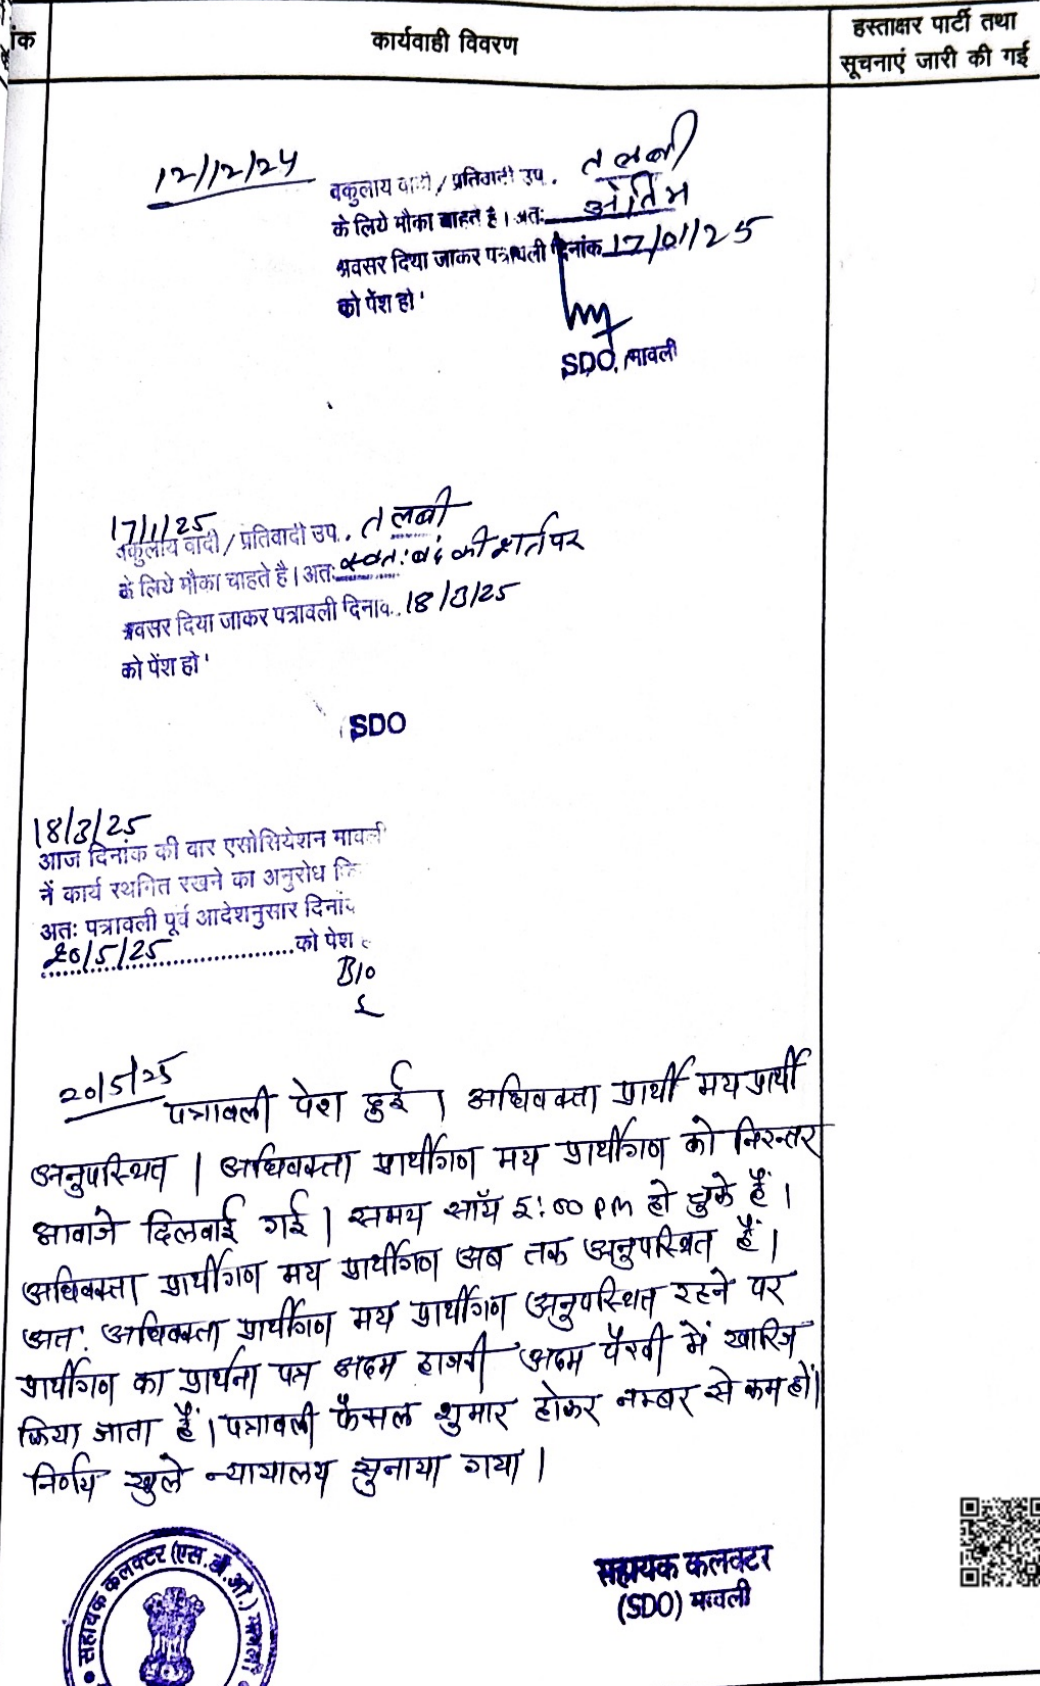 ांक
कार्यवाही विवरण
हस्ताक्षर पार्टी तथा
सूचनाएं जारी की गई
12/12/24
वकुलाय वादी / प्रतिवादी उप. तलबी
के लिये मौका चाहते है। अतः अंतिम
अवसर दिया जाकर पत्रावली दिनांक 17/01/25
को पेंश हो '
SDO, मावली
17/1/25
वकुलाय वादी / प्रतिवादी उप.. तलबी
के लिये मौका चाहते है। अतः स्वतः बंद की शर्त पर
अवसर दिया जाकर पत्रावली दिनांक. 18/3/25
को पेंश हो '
SDO
18/3/25
आज दिनांक की वार एसोसियेशन मावली
नें कार्य स्थगित रखने का अनुरोध कि
अतः पत्रावली पूर्व आदेशनुसार दिनांक
20/5/25 को पेश
20/5/25
पत्रावली पेश हुई। अधिवक्ता प्रार्थी मय प्रार्थी
अनुपस्थित। अधिवक्ता प्रार्थीगण मय प्रार्थीगण को निरन्तर
आवाजे दिलवाई गई। समय सॉय 5:00 PM हो चुके हैं।
अधिवक्ता प्रार्थीगण मय प्रार्थीगण अब तक अनुपस्थित हैं।
अतः अधिवक्ता प्रार्थीगण मय प्रार्थीगण अनुपस्थित रहने पर
प्रार्थीगण का प्रार्थना पत्र अदम हाजरी अदम पैरवी में खारिज
किया जाता हैं। पत्रावली फैसल शुमार होकर नम्बर से कम हो।
निर्णय खुले न्यायालय सुनाया गया।
सहायक कलक्टर
(SDO) मावली
सहायक कलक्टर (एस.डी.ओ.) मावली